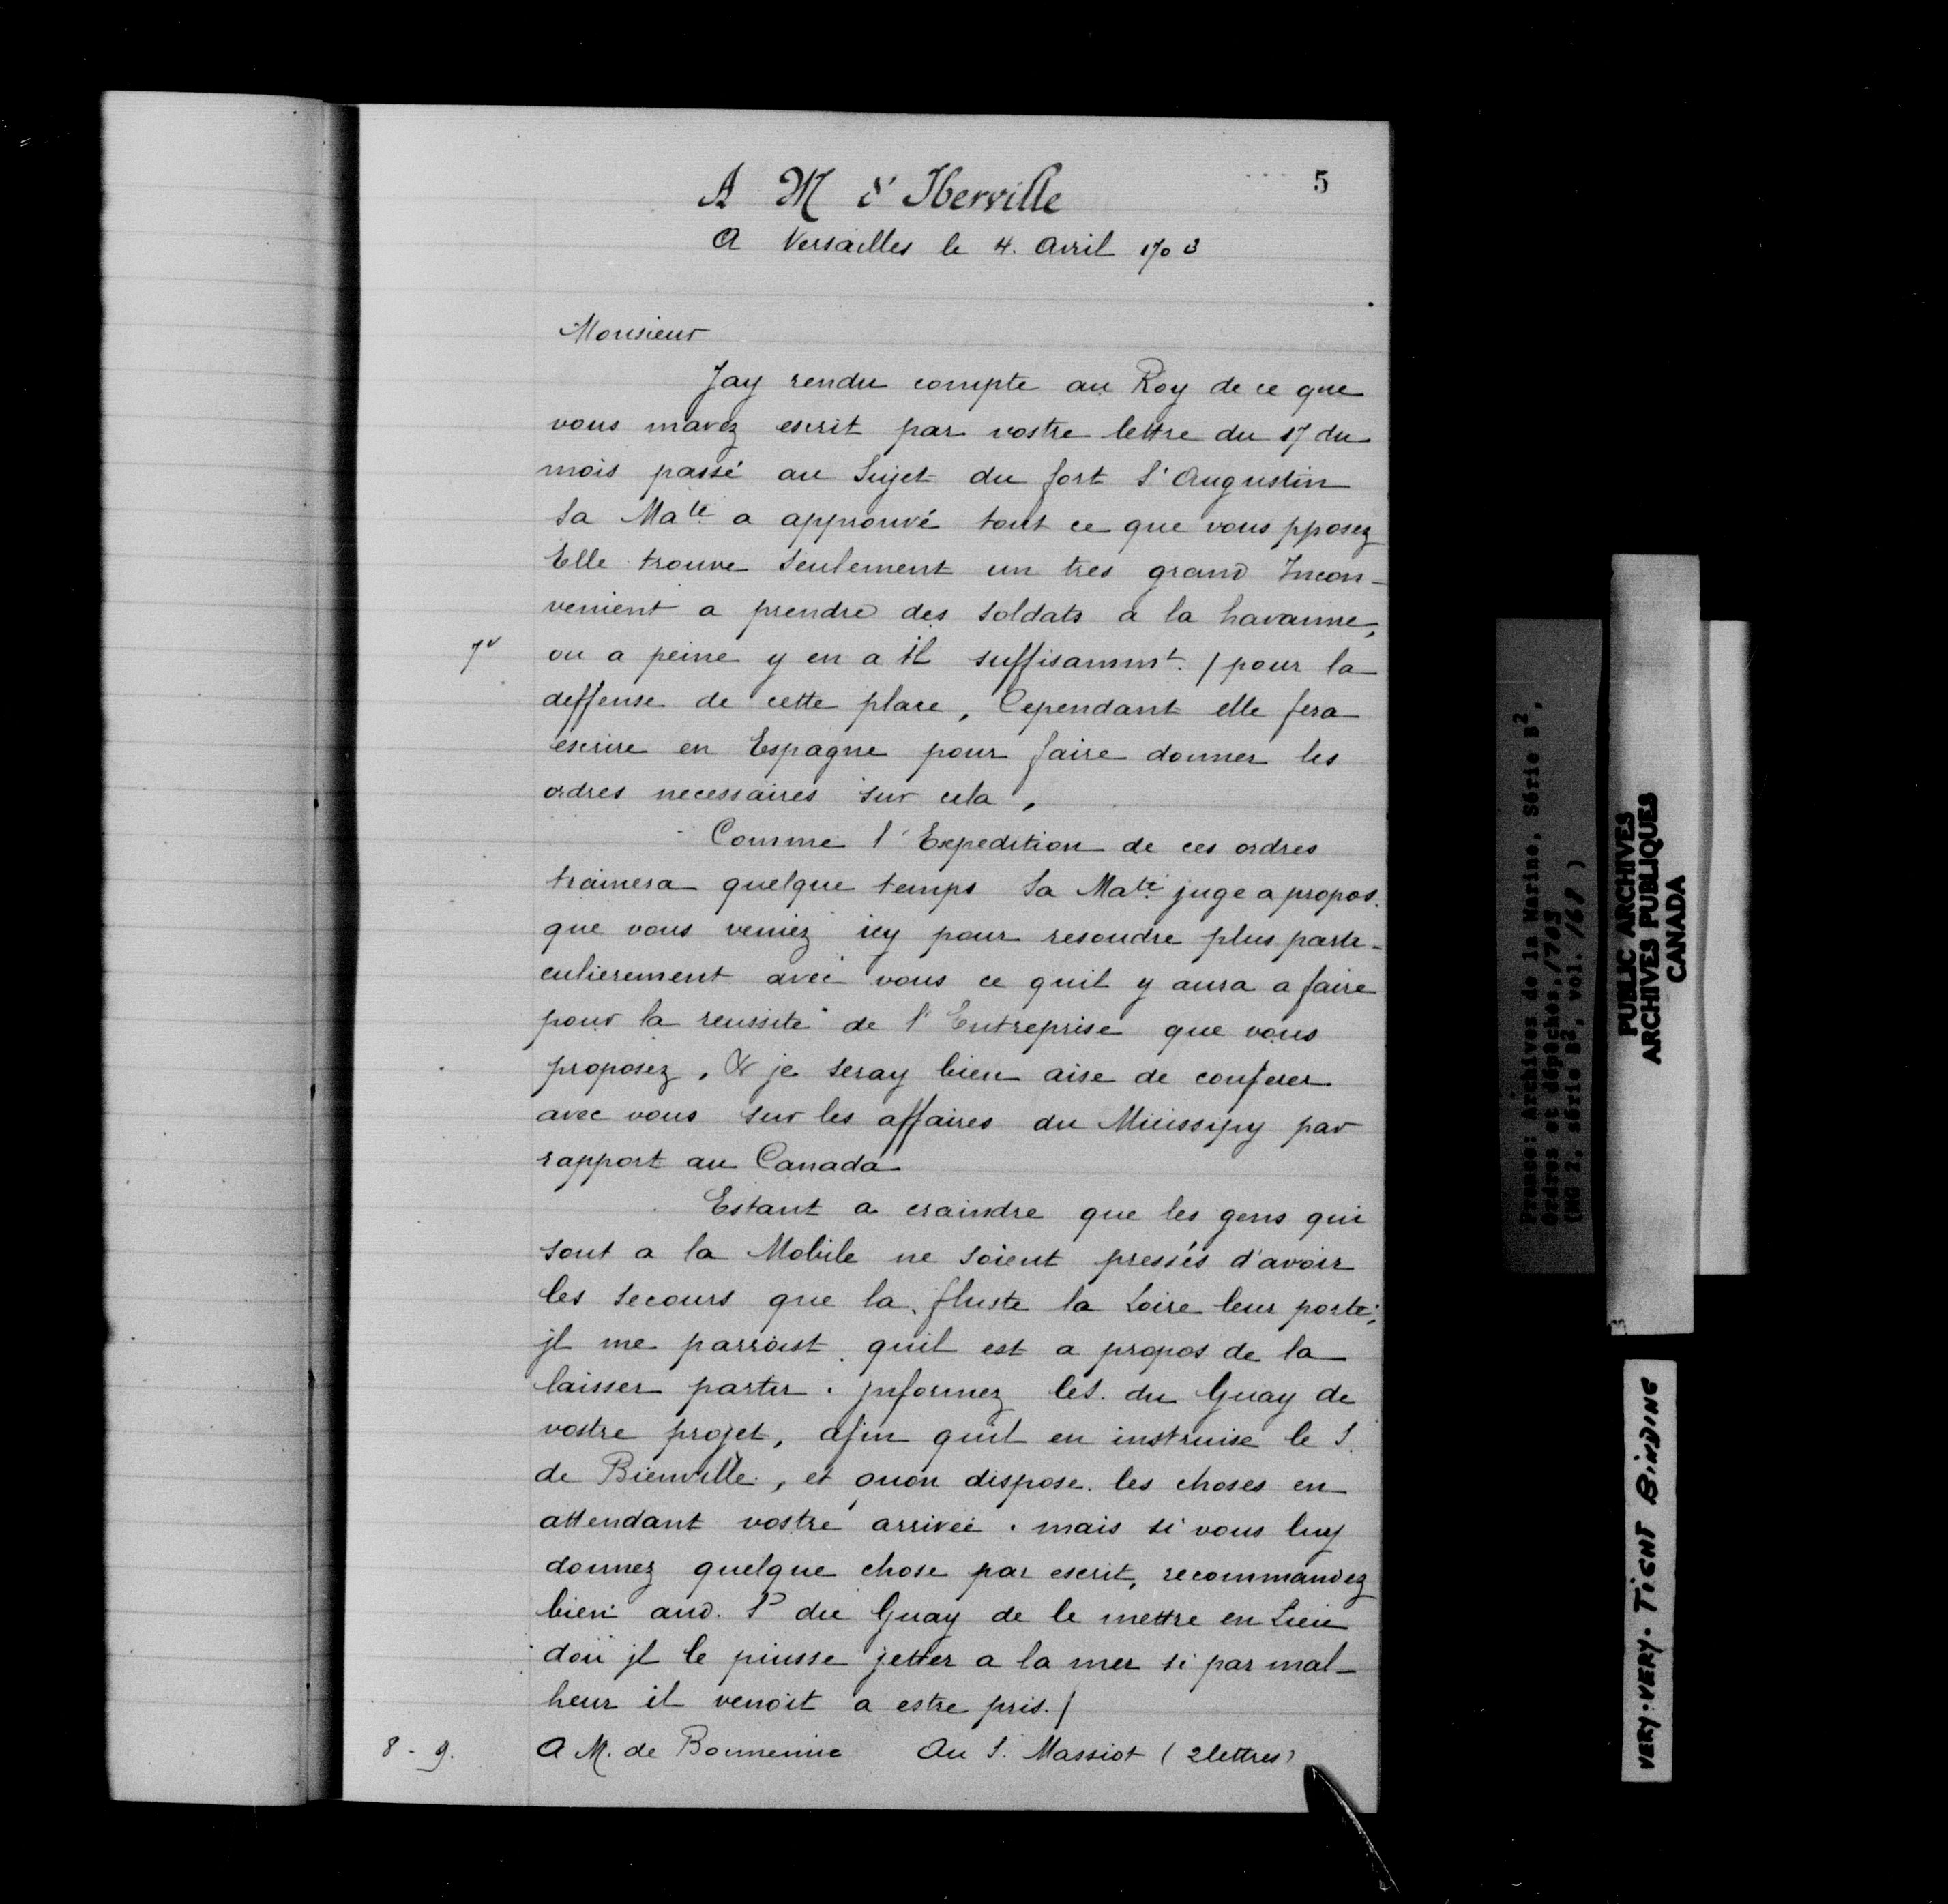 5
A M d'Iberville
A Versailles le 4. Avril 1703
Monsieur
Jay rendu compte au Roy de ce que
vous mavez escrit par vostre lettre du 17 du
mois passé au Sujet du fort St Augustin
Sa Maté a approuvé tout ce que vous pposez
Elle trouve Seulement un tres grand Incon-
venient a prendre des soldats a la havanne,
7v ou a peine y en a il suffisammt. / pour la
deffense de cette place, Cependant elle fera
escrire en Espagne pour faire donner les
ordres necessaires sur cela,
Comme l'Expedition de ces ordres
trainera quelque temps Sa Maté juge a propos
que vous veniez icy pour resoudre plus parti-
culierement avec vous ce quil y aura a faire
pour la reussite de l'Entreprise que vous
proposez, & je seray bien aise de conferer
avec vous sur les affaires du Micissipy par
rapport au Canada
Estant a craindre que les gens qui
sont a la Mobile ne soient pressés d'avoir
les secours que la fluste la Loire leur porte;
jl me parroist quil est a propos de la
laisser partir. Jnformez le S. du Guay de
vostre projet, afin quil en instruise le S.
de Bienville, et quon dispose les choses en
attendant vostre arrivée. mais si vous luy
donnez quelque chose par escrit, recommandez
bien aud. S du Guay de le mettre en Lieu
dou jl le puisse jetter a la mer si par mal-
heur il venoit a estre pris./
8 - 9. A M. de Au S. Massiot (2 lettres)
France: Archives de la Marine, Série B2,
Ordres et dépêches, 1703
(MG 2, série B2, vol. 168)
PUBLIC ARCHIVES
ARCHIVES PUBLIQUES
CANADA
VERY-VERY-TIGHT BINDING